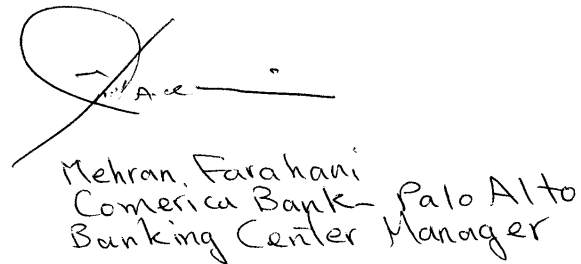 Mehran Farahani
Comerica Bank - Palo Alto
Banking Center Manager